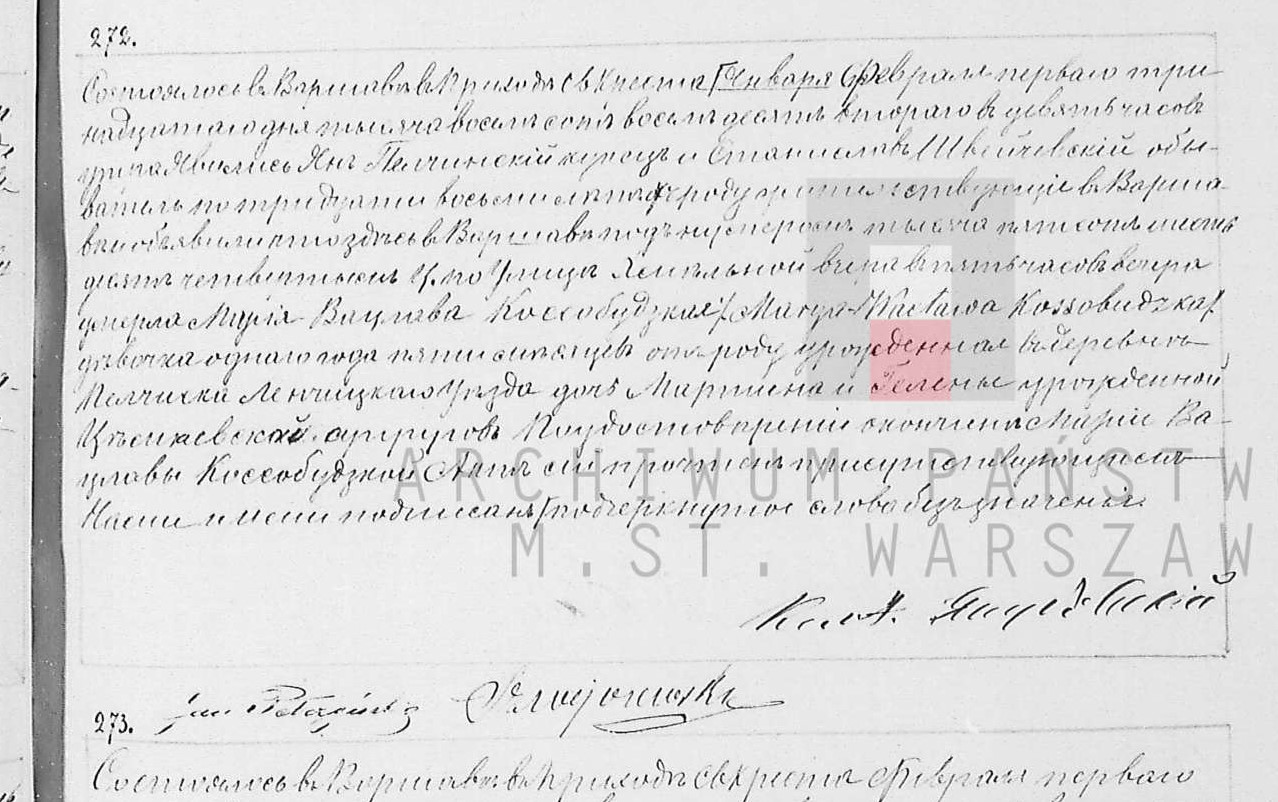 272.
Состоялось въ Варшавѣ въ Приходѣ Св Креста Января Февраля перваго три-
надцатаго дня тысяча восемьсотъ восемьдесятъ втораго въ девять часовъ
утра Явились Янъ Пелчинскій купецъ и Станиславъ Швейчевскій обы-
ватель по тридцати восьми лѣтъ отъ роду жительствующіе въ Варша-
вѣ и объявили что здѣсь въ Варшавѣ подъ нумеромъ тысяча пятьсотъ шесть
десятъ четвертымъ Ц. по Улицѣ вчера въ пять часовъ вечера
умерла Марія Вацлава Коссобудзкая /Marya Wacława Kossobudzka/
дѣвочка однаго года пяти мѣсяцевъ отъ роду урожденная въ деревнѣ
Пелчиска Ленчицкаго Уѣзда дочь Мартина и Гелены урожденной
супруговъ По удостовѣреніи о кончинѣ Маріи Ва-
цлавы Коссобудзкой Актъ сей прочтенъ присутствующимъ
Нами и ими подписанъ подчеркнутое слово безъ значенія.
ARCHIWUM PAŃSTW
M.ST. WARSZAW
273.
Состоялось въ Варшавѣ въ Приходѣ Св Креста Февраля перваго